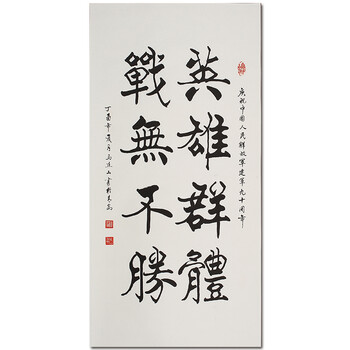 庆祝中国人民解放军建军九十周年
英雄群體
戰無不勝
丁酉年夏月